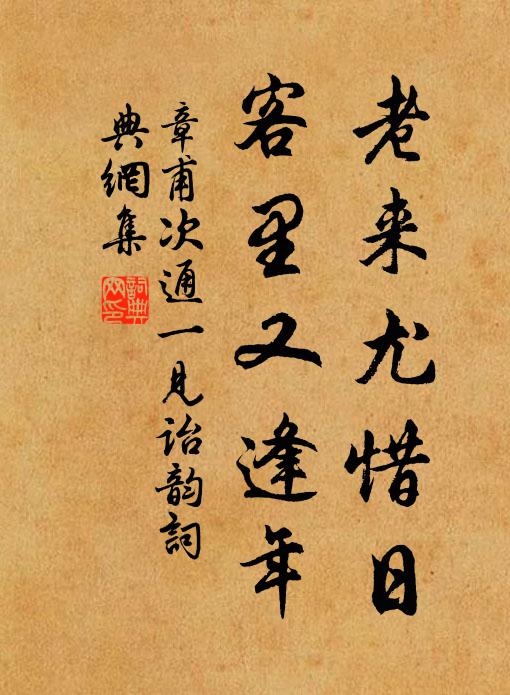 老来尤惜日
客里又逢年
章甫次通一見詒韵詞
典網集
詞典
网印